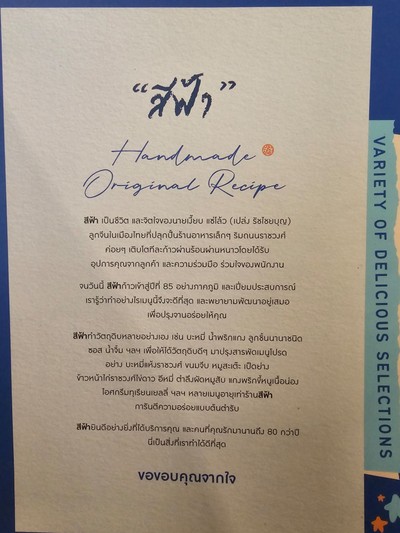 “สีฟ้า”
Handmade
Original Recipe
สีฟ้า เป็นชีวิต และจิตใจของนายเงี๊ยบ แซ่โล้ว (เปล่ง รัชไชยบุญ)
ลูกจีนในเมืองไทยที่ปลุกปั้นร้านอาหารเล็กๆ ริมถนนราชวงศ์
ค่อยๆ เติบโตทีละก้าวผ่านร้อนผ่านหนาวโดยได้รับ
อุปการคุณจากลูกค้า และความร่วมมือ ร่วมใจของพนักงาน
จนวันนี้ สีฟ้าก้าวเข้าสู่ปีที่ 85 อย่างภาคภูมิ และเปี่ยมประสบการณ์
เรารู้ว่าทำอย่างไรเมนูนี้จึงจะดีที่สุด และพยายามพัฒนาอยู่เสมอ
เพื่อปรุงจานอร่อยให้คุณ
สีฟ้าทำวัตถุดิบหลายอย่างเอง เช่น บะหมี่ น้ำพริกแกง ลูกชิ้นนานาชนิด
ซอส น้ำจิ้ม ฯลฯ เพื่อให้ได้วัตถุดิบดีๆ มาปรุงสารพัดเมนูโปรด
อย่าง บะหมี่แห้งราชวงศ์ ขนมจีบ หมูสะเต๊ะ เป็ดย่าง
ข้าวหน้าไก่ราชวงศ์ไข่ดาว อีหมี่ ตำลึงผัดหมูสับ แกงพริกขี้หนูเนื้อน่อง
ไอศกรีมทุเรียนเยลลี่ ฯลฯ หลายเมนูอายุเท่าร้านสีฟ้า
การันตีความอร่อยแบบต้นตำรับ
สีฟ้ายินดีอย่างยิ่งที่ได้บริการคุณ และคนที่คุณรักมานานถึง 80 กว่าปี
นี่เป็นสิ่งที่เราทำได้ดีที่สุด
ขอขอบคุณจากใจ
VARIETY OF DELICIOUS SELECTIONS